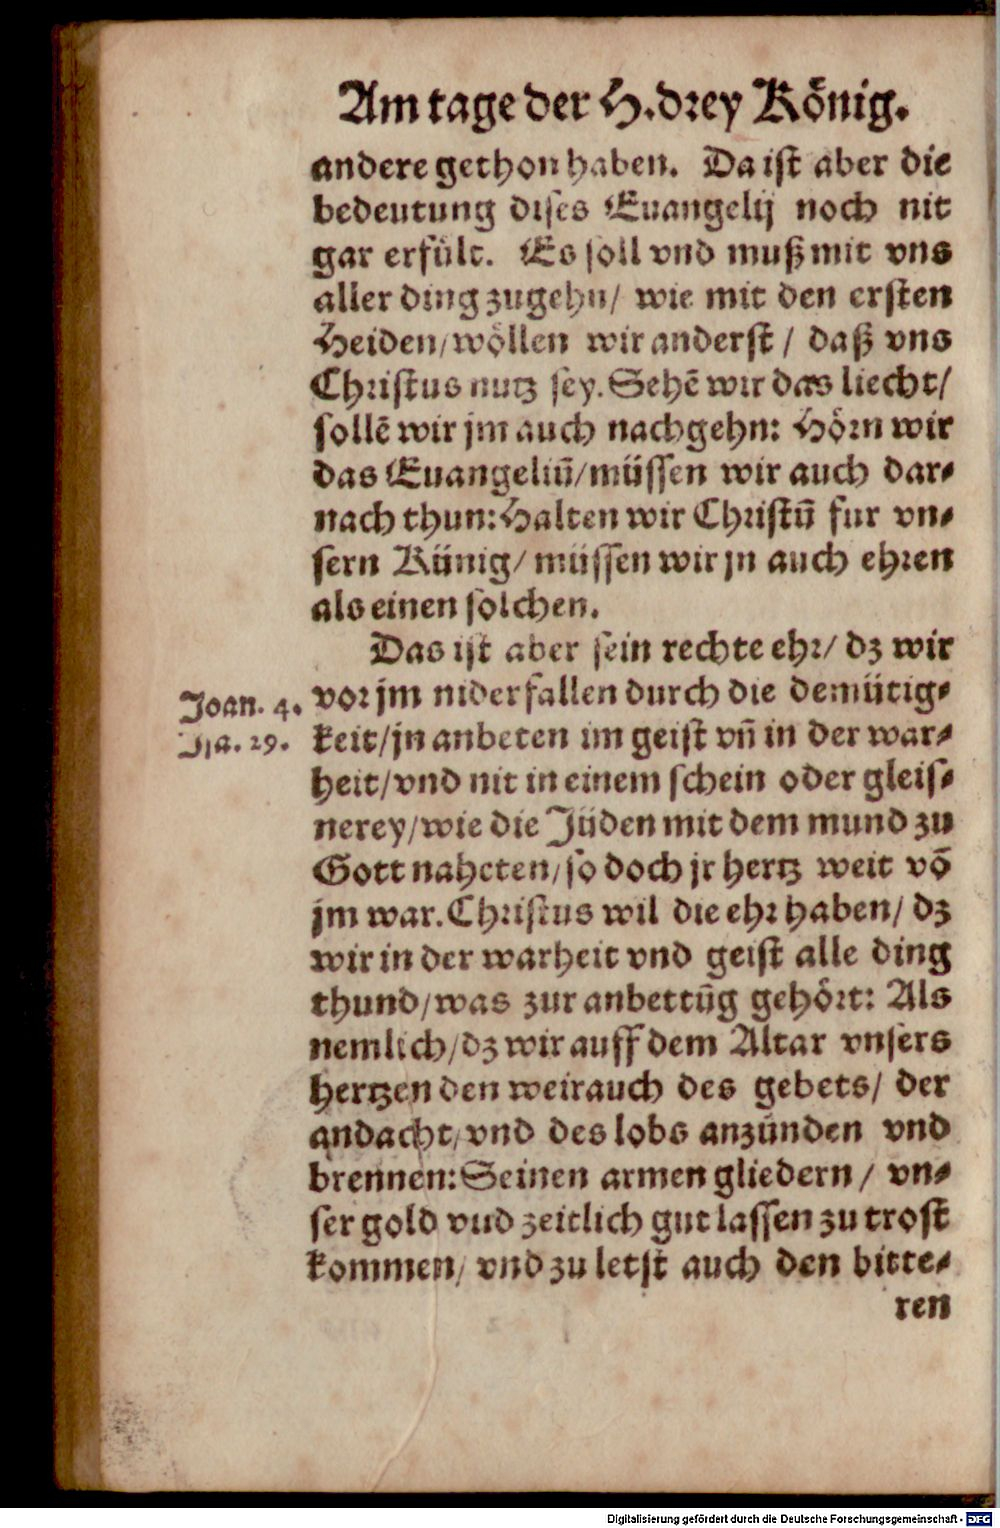 Am tage der H. drey König.
andere gethon haben. Da ist aber die
bedeutung dises Euangelij noch nit
gar erfült. Es soll vnd muß mit vns
aller ding zugehn/ wie mit den ersten
Heiden/ wöllen wir anderst / daß vns
Christus nutz sey. Sehē wir das liecht/
sollē wir jm auch nachgehn: Hörn wir
das Euangeliū/ müssen wir auch dar⸗
nach thun: Halten wir Christū fur vn⸗
sern Künig/ müssen wir jn auch ehren
als einen solchen.
Das ist aber sein rechte ehr/ dz wir
Joan. 4. vor jm niderfallen durch die demütig⸗
Isa. 29. keit/ jn anbeten im geist vn̄ in der war⸗
heit/ vnd nit in einem schein oder gleis⸗
nerey/ wie die Jüden mit dem mund zu
Gott naheten/ so doch jr hertz weit vō
jm war. Christus wil die ehr haben/ dz
wir in der warheit vnd geist alle ding
thund/ was zur anbettūg gehört: Als
nemlich/ dz wir auff dem Altar vnsers
hertzen den weirauch des gebets/ der
andacht/ vnd des lobs anzünden vnd
brennen: Seinen armen gliedern / vn⸗
ser gold vnd zeitlich gut lassen zu trost
kommen/ vnd zu letst auch den bitte⸗
ren
Digitalisierung gefördert durch die Deutsche Forschungsgemeinschaft - DFG